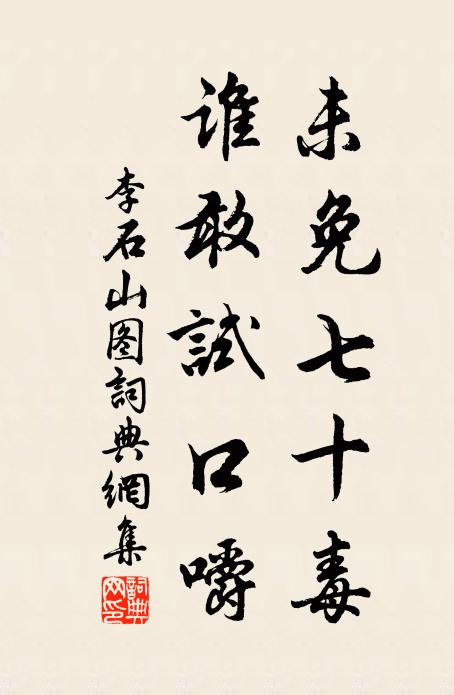 未免七十毒
誰敢試口嚼
李石山图詞典網集
詞典网印